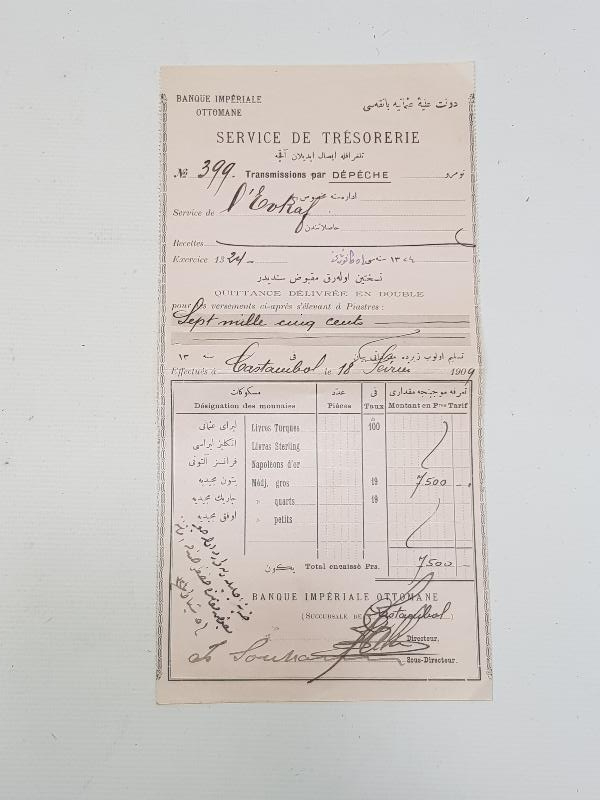 BANQUE IMPÉRIALE
OTTOMANE
دولت عليهٔ عثمانيه بانقه‌سى
SERVICE DE TRÉSORERIE
تلغرافله ايصال ايديلان آقچه
№ 399. Transmissions par DÉPÊCHE نومرو
اداره‌سنه مخصوص
Service de l'Evkaf
حاصلاتندن
Recettes
Exercice 1324 ١٣٢٤ سنه سى
نسختين اوله‌رق مقبوض سنديدر
QUITTANCE DÉLIVRÉE EN DOUBLE
pour les versements ci-après s'élevant à Piastres :
Sept mille cinq cents
تسليم اولوب زيرده
سنه ١٣
Effectués à Castambol le 18 1909
مسكوكات عدد فى تعرفه موجبنجه مقدارى
Désignation des monnaies Pièces Taux Montant en Pres Tarif
ليراى عثمانى Livres Turques 100
انكليز ليراسى Livres Sterling
فرانسز آلتونى Napoléons d'or
بتون مجيديه Médj. gros 19 7500
چاريك مجيديه » quarts 19
اوفق مجيديه » petits
يكون Total encaissé Prs. 7500
BANQUE IMPÉRIALE OTTOMANE
(SUCCURSALE DE Castambol)
Directeur.
Sous-Directeur.